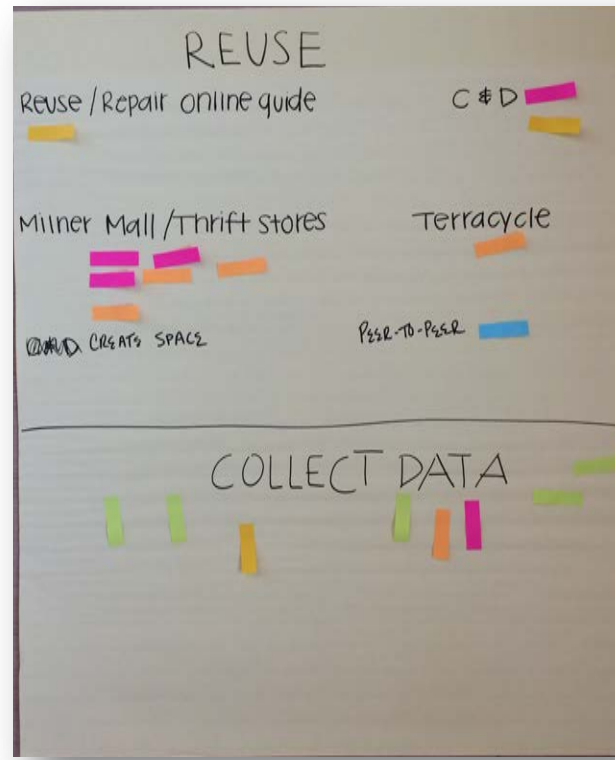 REUSE
Reuse/Repair online guide
C & D
Milner Mall/Thrift stores
Terracycle
CREATE SPACE
PEER-TO-PEER
COLLECT DATA